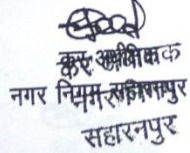 कर अधीक्षक
नगर निगम सहारनपुर
सहारनपुर